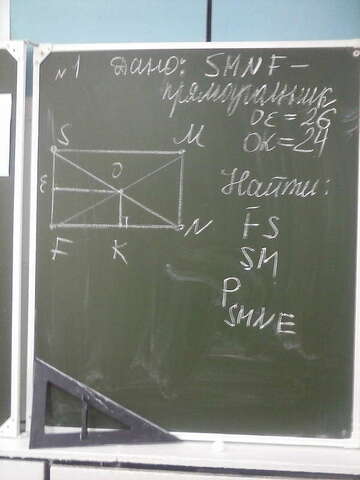 №1 Дано: SMNF -
прямоугольник
OE = 26
OK = 24
S
M
O
E
F
K
N
Найти:
FS
SM
P SMNE